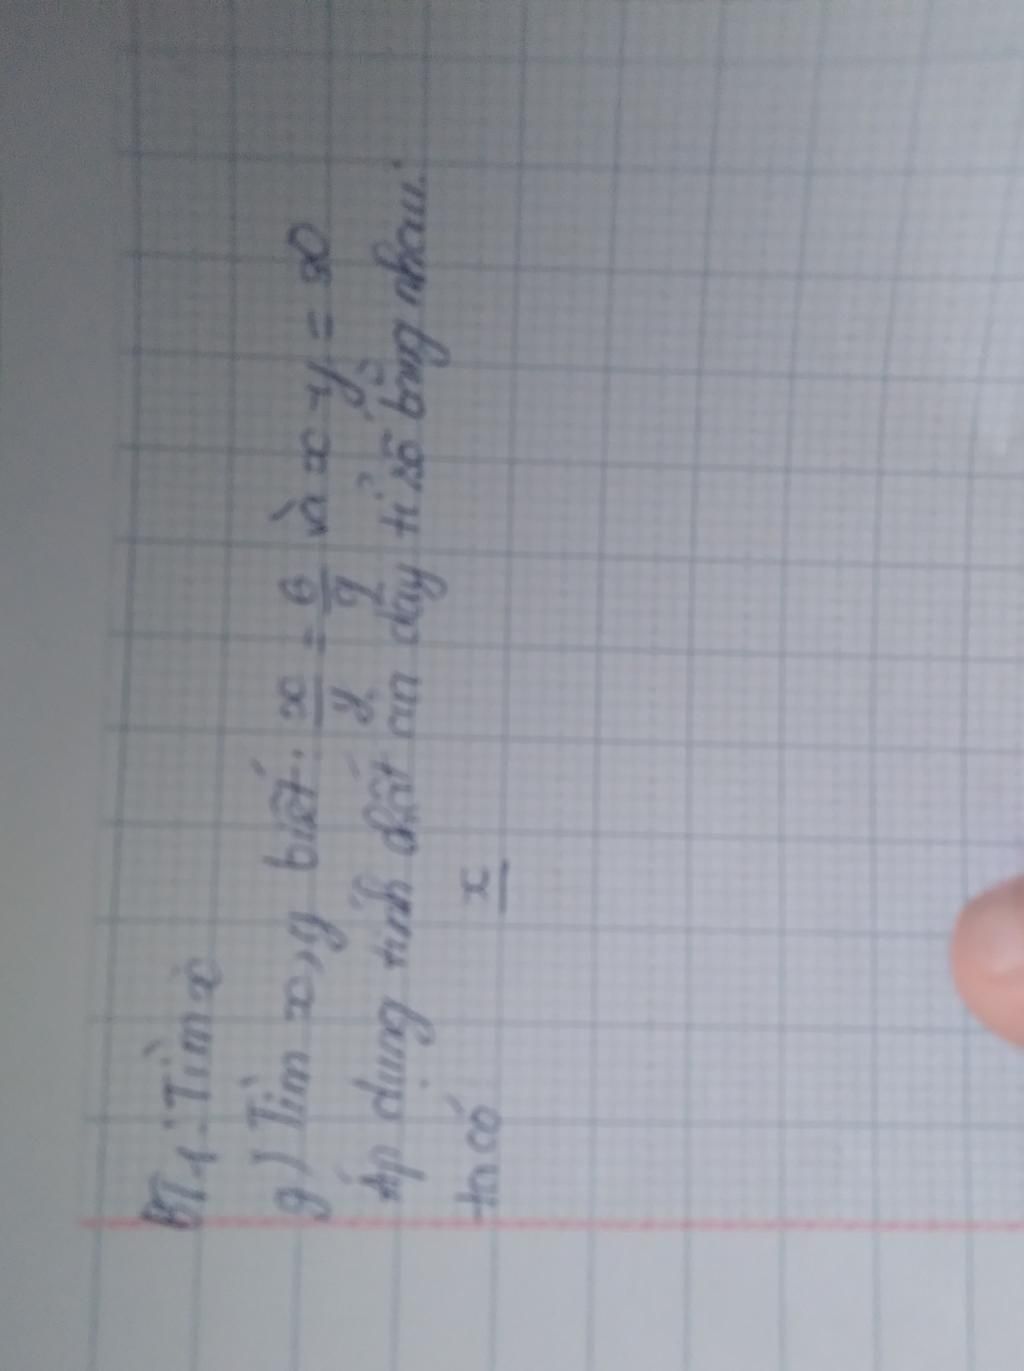 BT1: Tìm x
g) Tìm x, y biết: x/y = 6/9 và x + y = 30
Áp dụng tính chất của dãy tỉ số bằng nhau:
ta có x